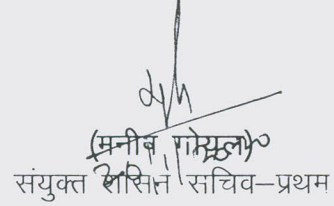 (मनीव गोयल)
संयुक्त शासन सचिव–प्रथम